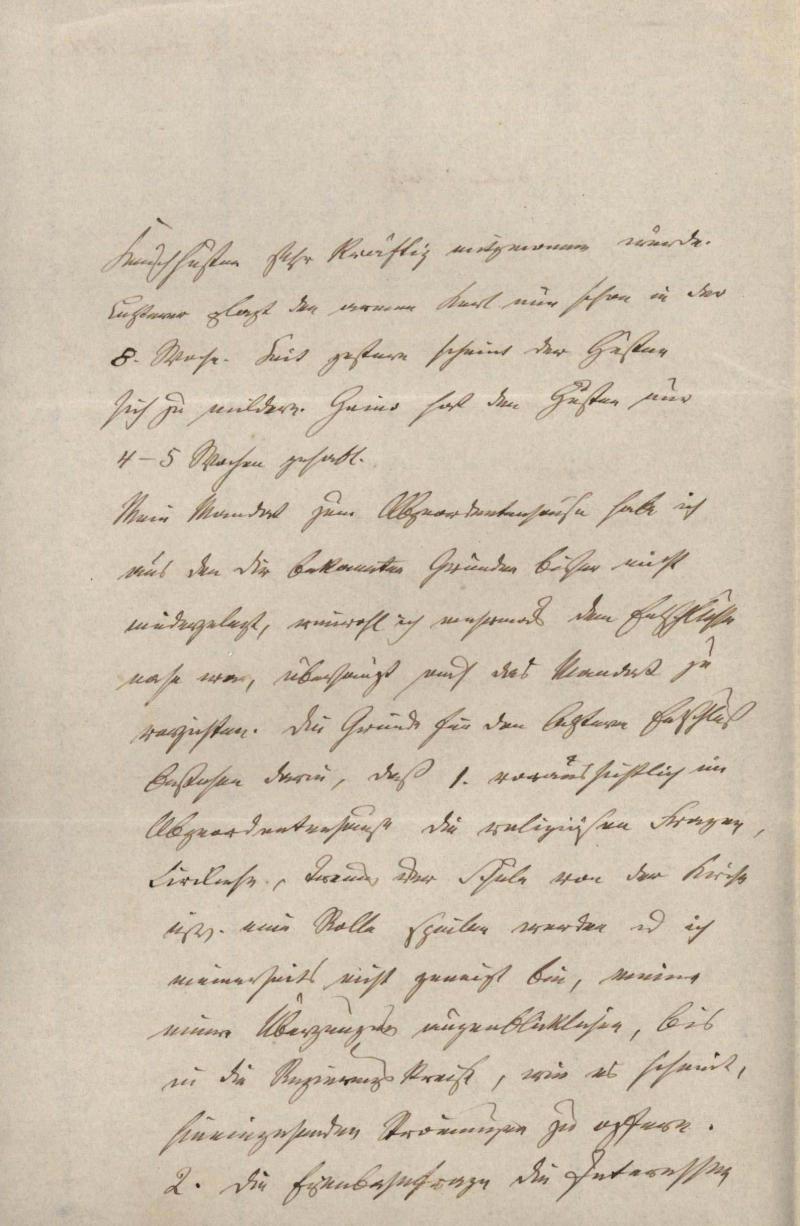 Keuchhusten sehr kräftig mitgenommen wurde.
Letzterer plagt den armen Kerl nun schon in der
8. Woche. Seit gestern scheint der Husten
sich zu mildern. Heino hat den Husten nur
4-5 Wochen gehabt.
Mein Mandat zum Abgeordnetenhause habe ich
aus den Dir bekannten Gründen bisher nicht
niedergelegt, wiewohl ich mehrmals dem Entschlusse
nahe war, überhaupt auf das Mandat zu
verzichten. Die Gründe für den letztern Entschluß
bestehen darin, daß 1. voraussichtlich im
Abgeordnetenhause die religiösen Fragen,
Civilehe, der Schule von der Kirche
usw. eine Rolle spielen werden und ich
meinerseits nicht geneigt bin, meine
innere Überzeugung augenblicklichen, bis
in die Regierungskreise, wie es scheint,
hineingehenden Strömungen zu opfern.
2. die Eisenbahnfrage die Interessen